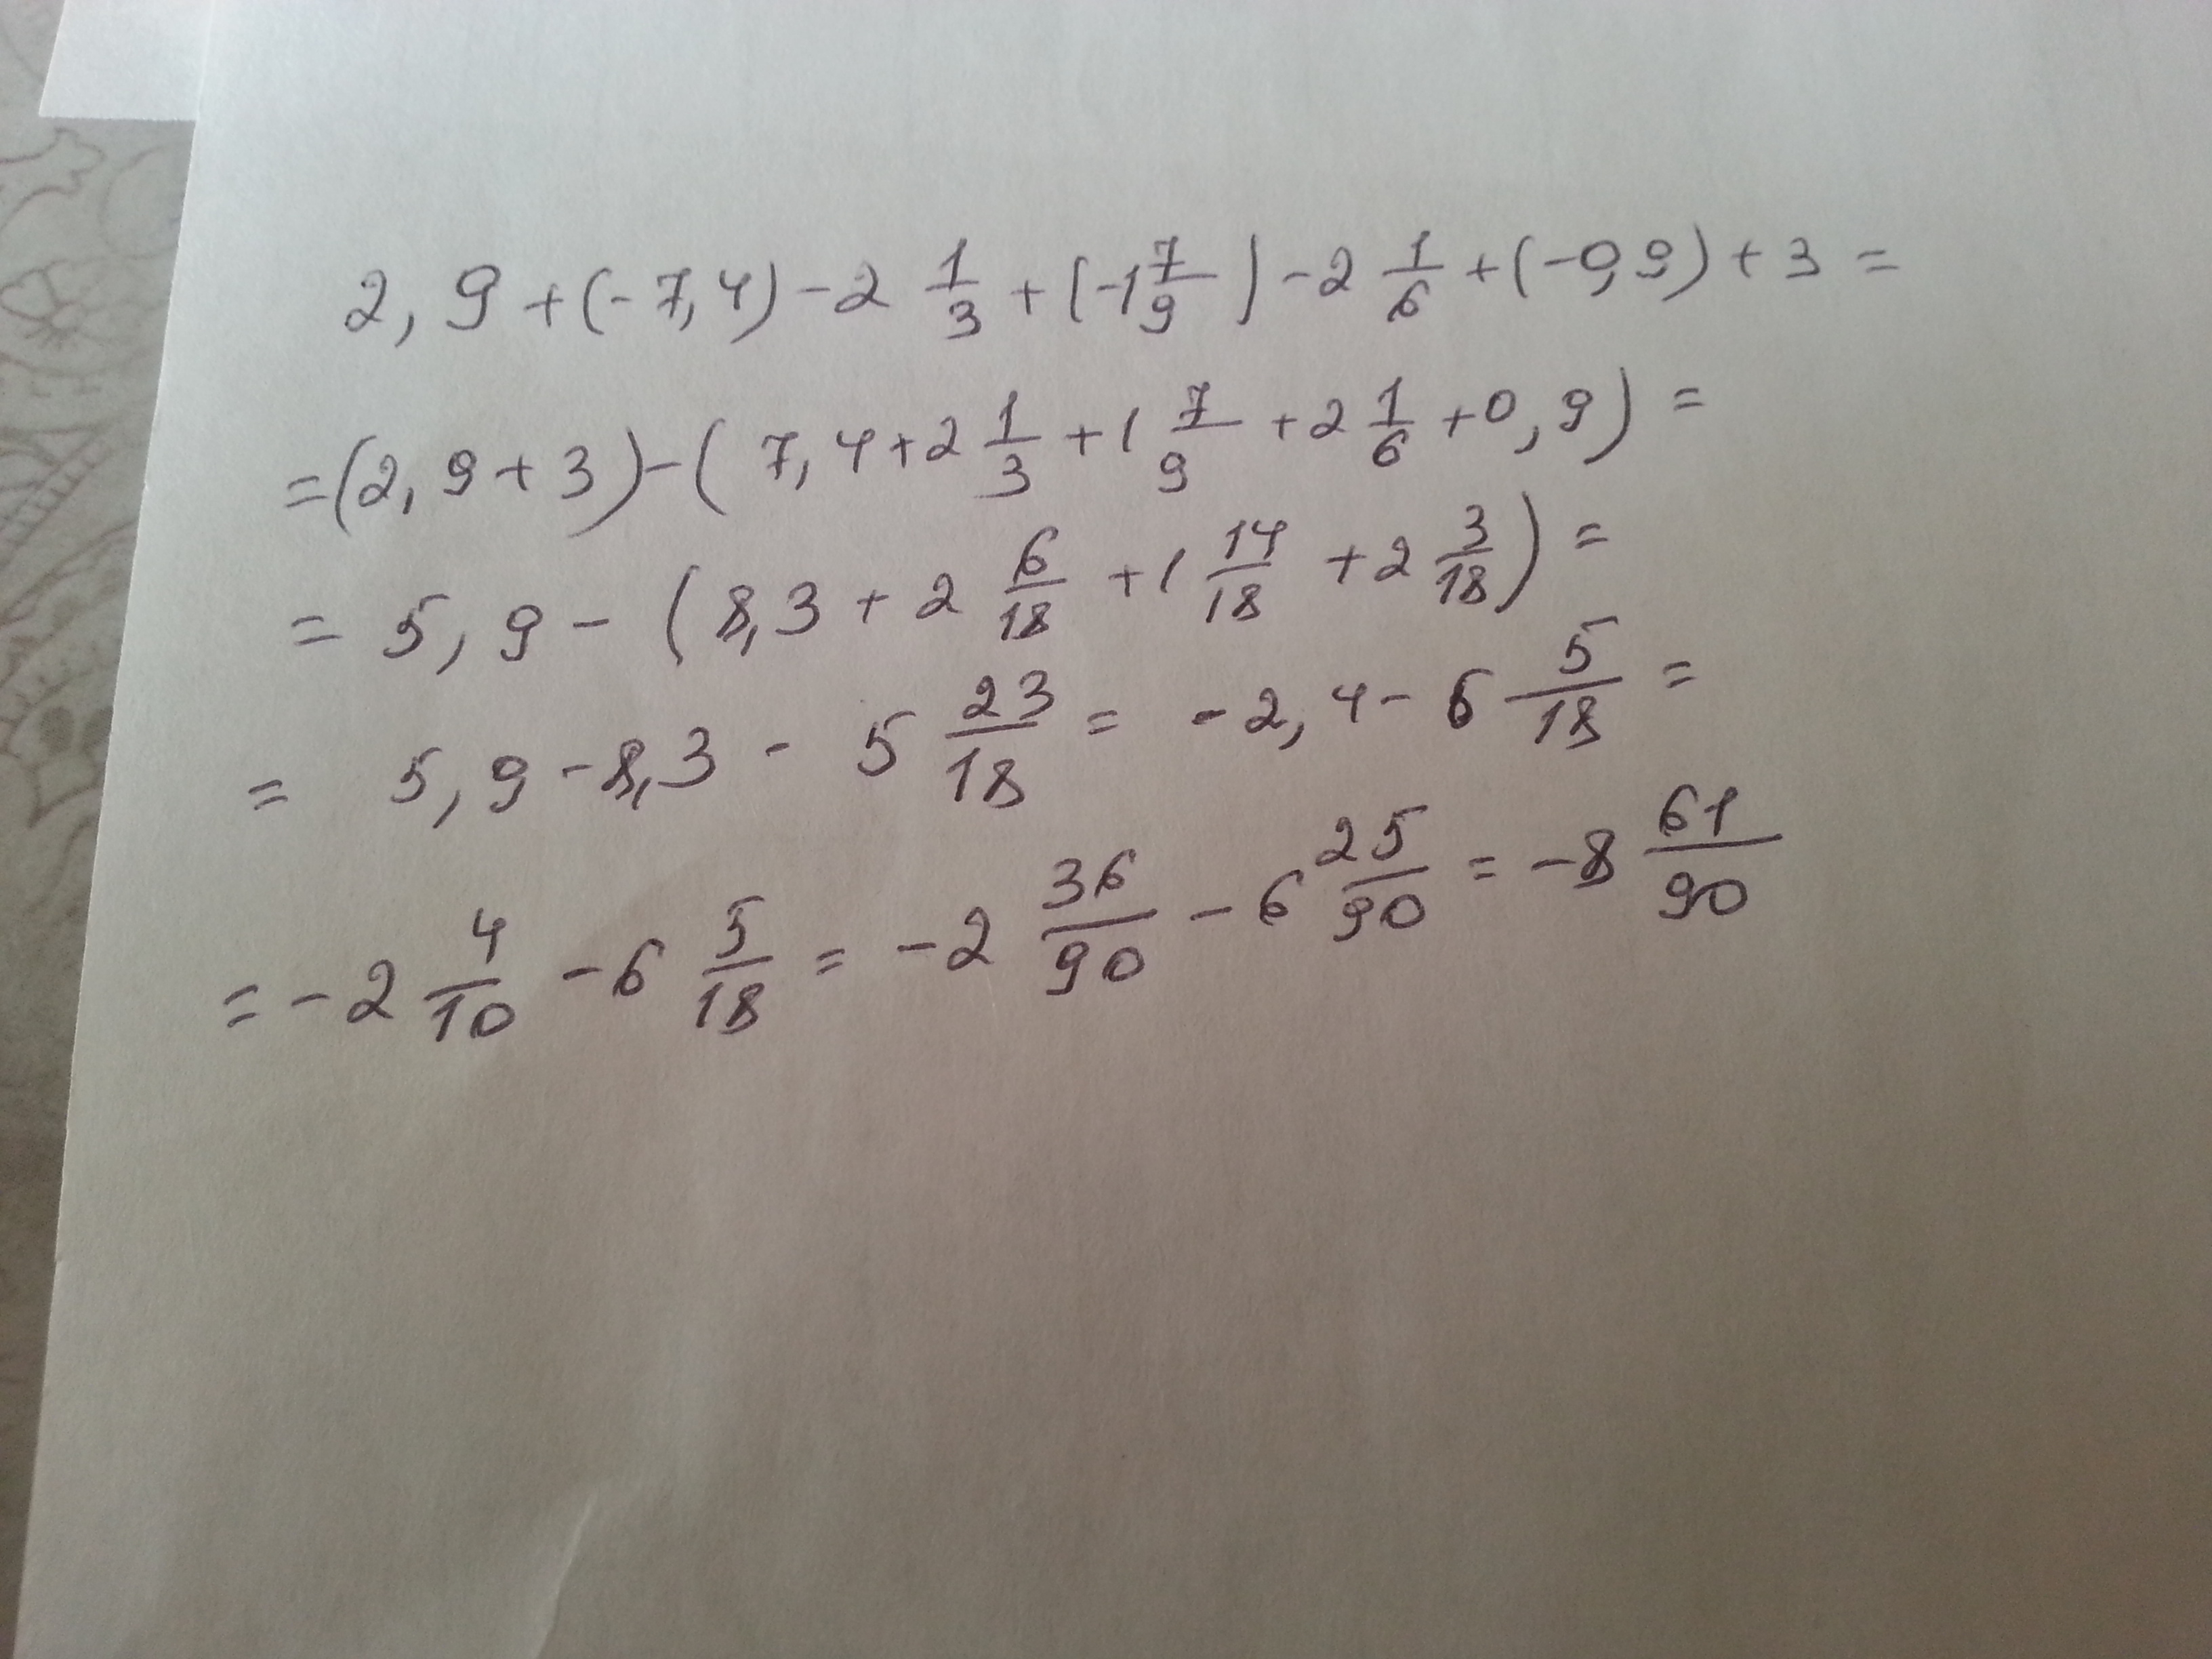 2,9+(-7,4)-2 1/3+(-1 7/9)-2 1/6+(-0,9)+3=
=(2,9+3)-(7,4+2 1/3+1 7/9+2 1/6+0,9)=
=5,9-(8,3+2 6/18+1 14/18+2 3/18)=
=5,9-8,3-5 23/18=-2,4-6 5/18=
=-2 4/10-6 5/18=-2 36/90-6 25/90=-8 61/90